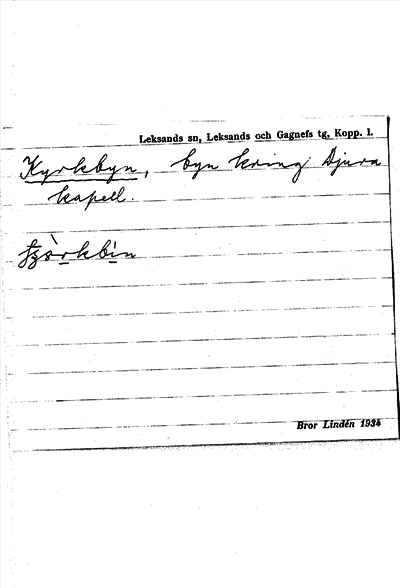 Leksands sn, Leksands och Gagnefs tg, Kopp. l.
Kyrkbyn, byn kring Djura
kapell.
Bror Lindén 1934